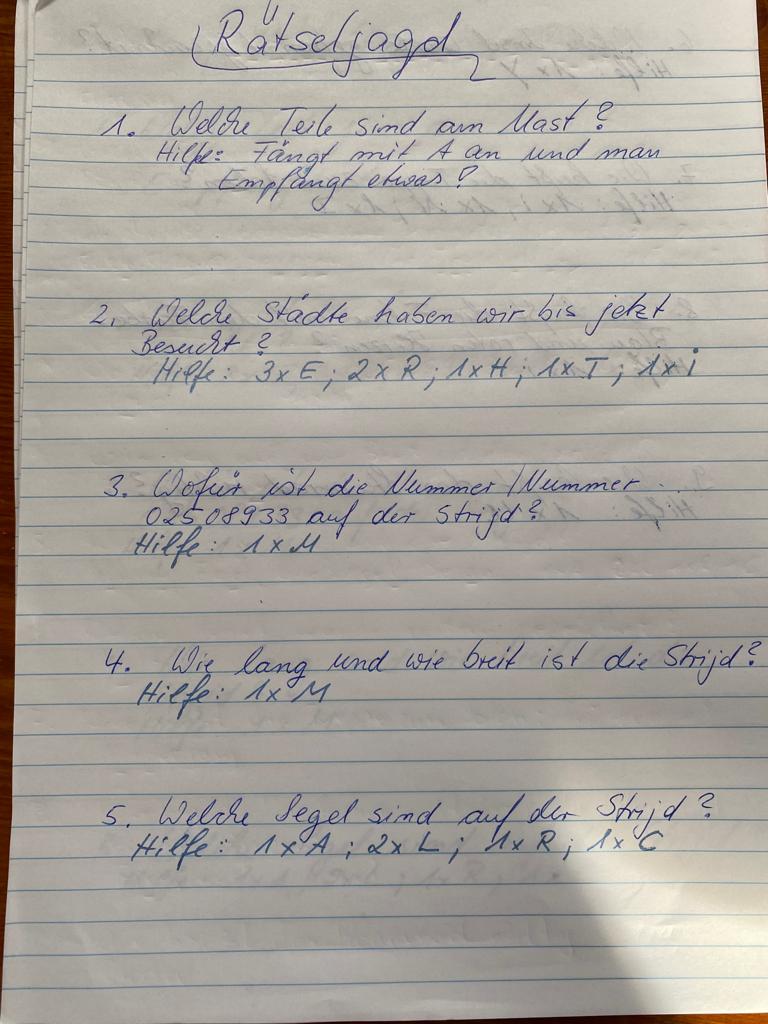 Rätseljagd
1. Welche Teile sind am Mast?
Hilfe: Fängt mit A an und man
Empfängt etwas?
2. Welche Städte haben wir bis jetzt
Besucht?
Hilfe: 3x E; 2x R; 1x H; 1x T; 1x i
3. Wofür ist die Nummer/Nummer
02508933 auf der Strijd?
Hilfe: 1x M
4. Wie lang und wie breit ist die Strijd?
Hilfe: 1x M
5. Welche Segel sind auf der Strijd?
Hilfe: 1x A; 2x L; 1x R; 1x C